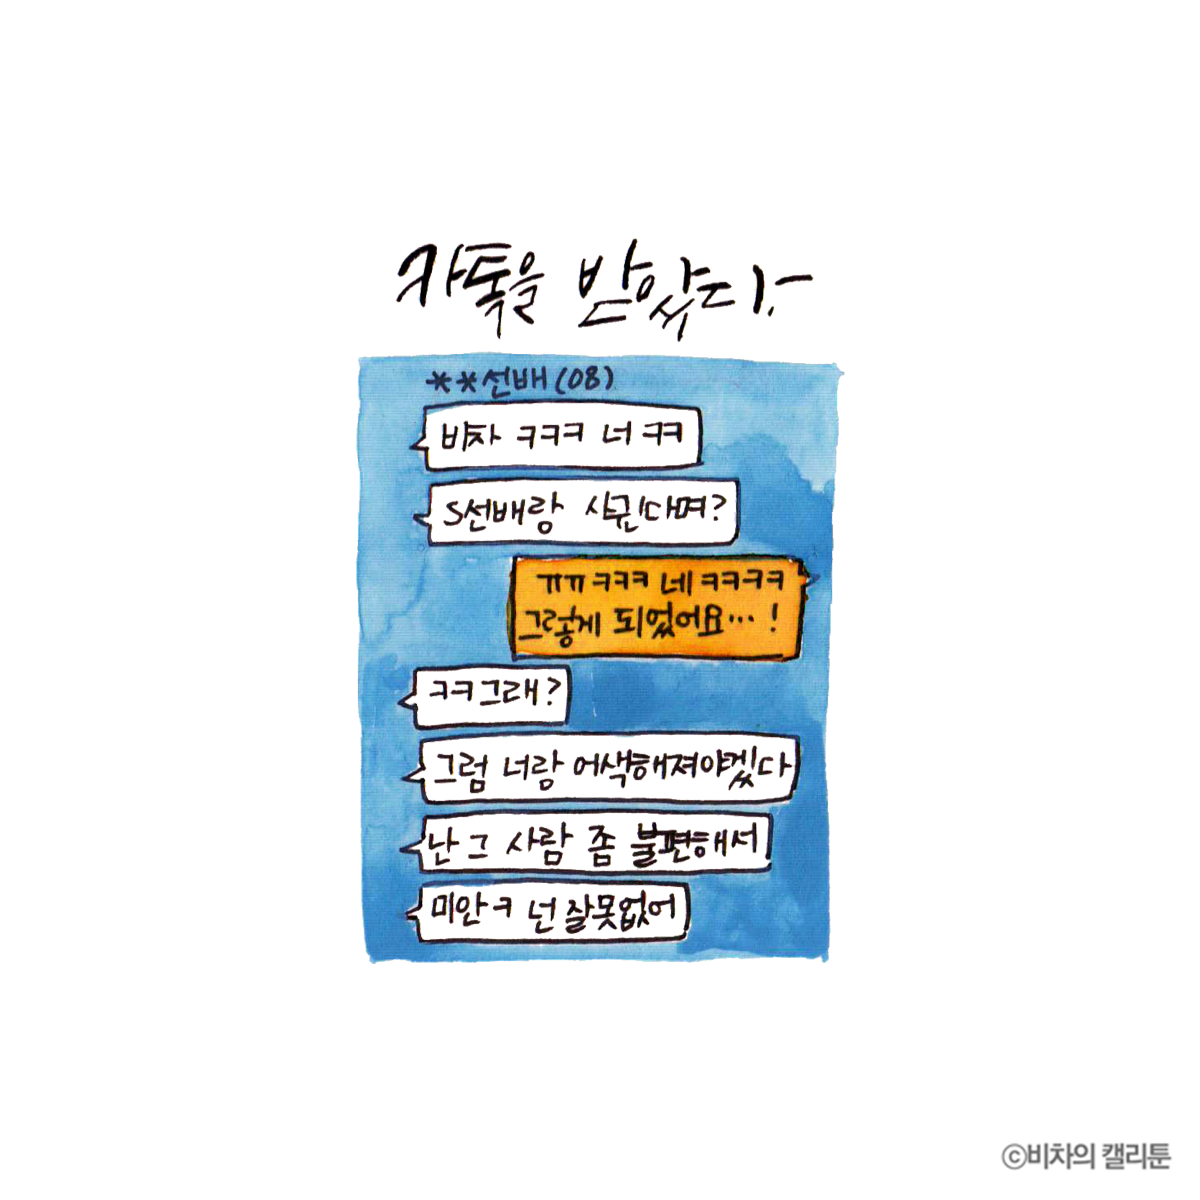 카톡을 받았다.
**선배(08)
비차 ㅋㅋㅋ 너 ㅋㅋ
S선배랑 사귄다며?
ㄲㄲㅋㅋㅋ 네ㅋㅋㅋㅋ
그렇게 되었어요… !
ㅋㅋ그래?
그럼 너랑 어색해져야겠다
난 그 사람 좀 불편해서
미안ㅋ 넌 잘못없어
©비차의 캘리툰